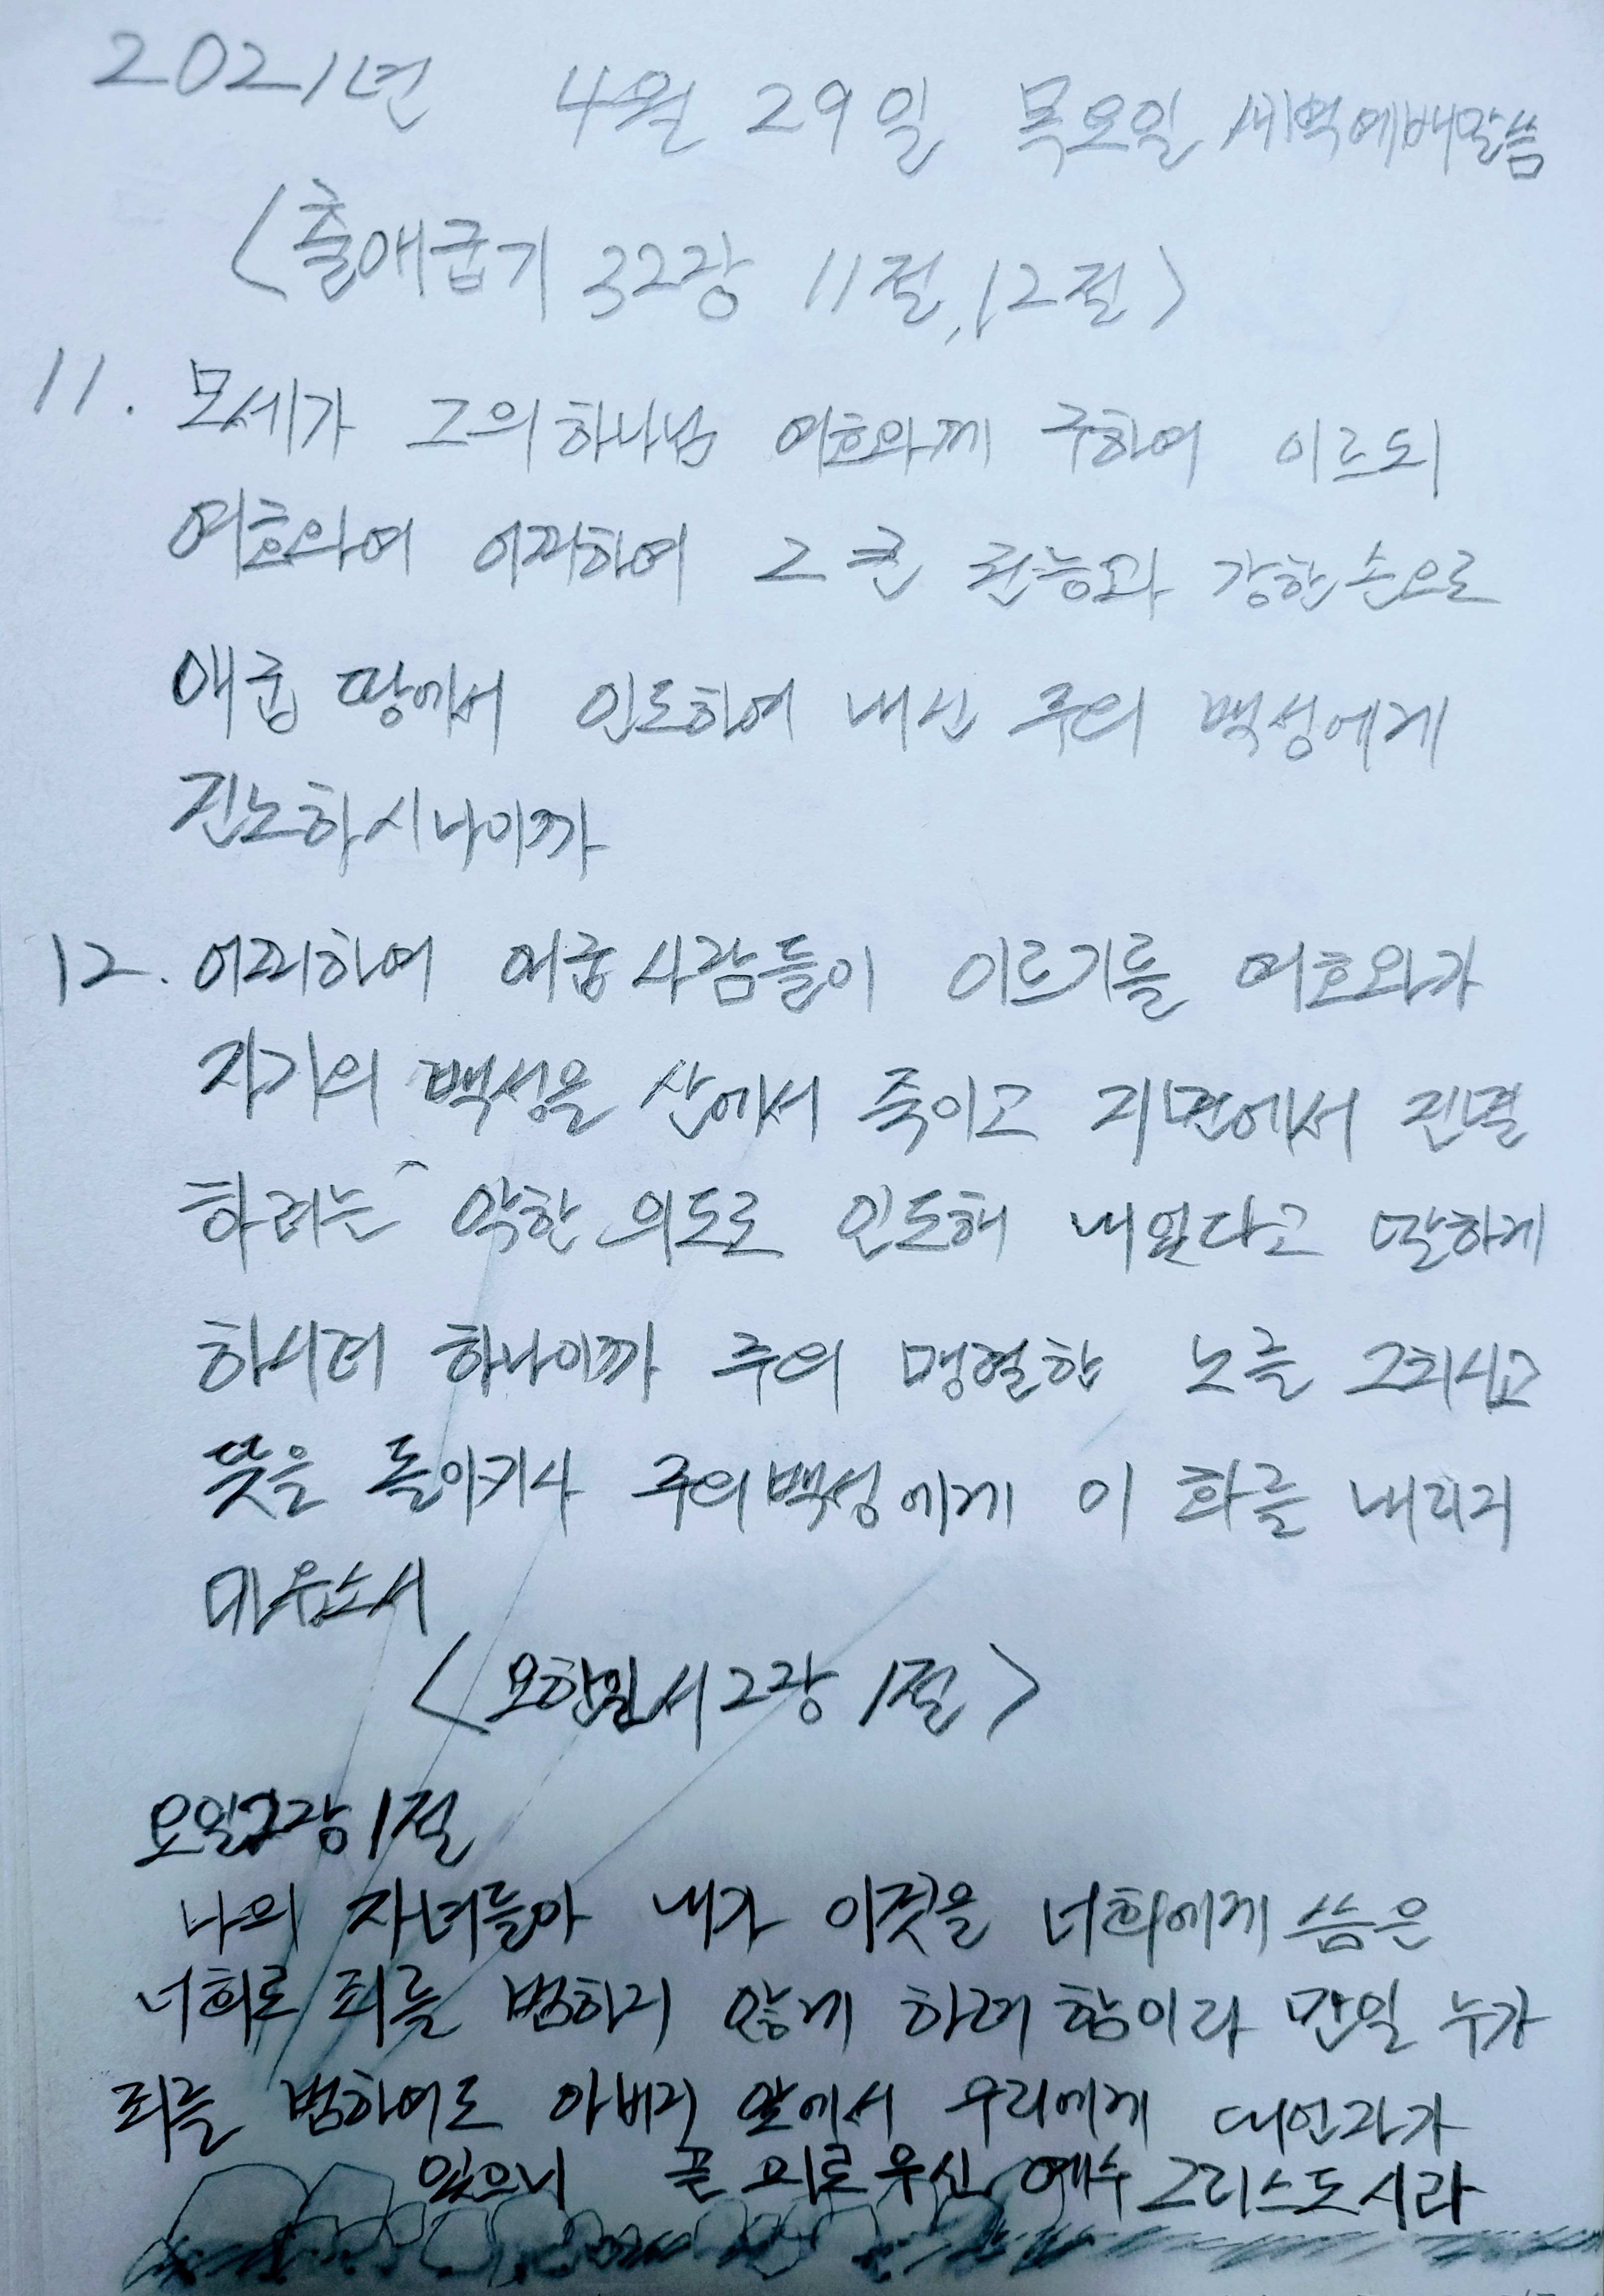 2021년 4월 29일 목요일 새벽예배말씀
<출애굽기 32장 11절, 12절>
11. 모세가 그의 하나님 여호와께 구하여 이르되
여호와여 어찌하여 그 큰 권능과 강한 손으로
애굽 땅에서 인도하여 내신 주의 백성에게
진노하시나이까
12. 어찌하여 애굽 사람들이 이르기를 여호와가
자기의 백성을 산에서 죽이고 지면에서 진멸
하려는 악한 의도로 인도해 내었다고 말하게
하시려 하나이까 주의 맹렬한 노를 그치시고
뜻을 돌이키사 주의 백성에게 이 화를 내리지
마옵소서
<요한일서 2장 1절>
요일2장 1절
나의 자녀들아 내가 이것을 너희에게 씀은
너희로 죄를 범하지 않게 하려 함이라 만일 누가
죄를 범하여도 아버지 앞에서 우리에게 대언자가
있으니 곧 의로우신 예수 그리스도시라